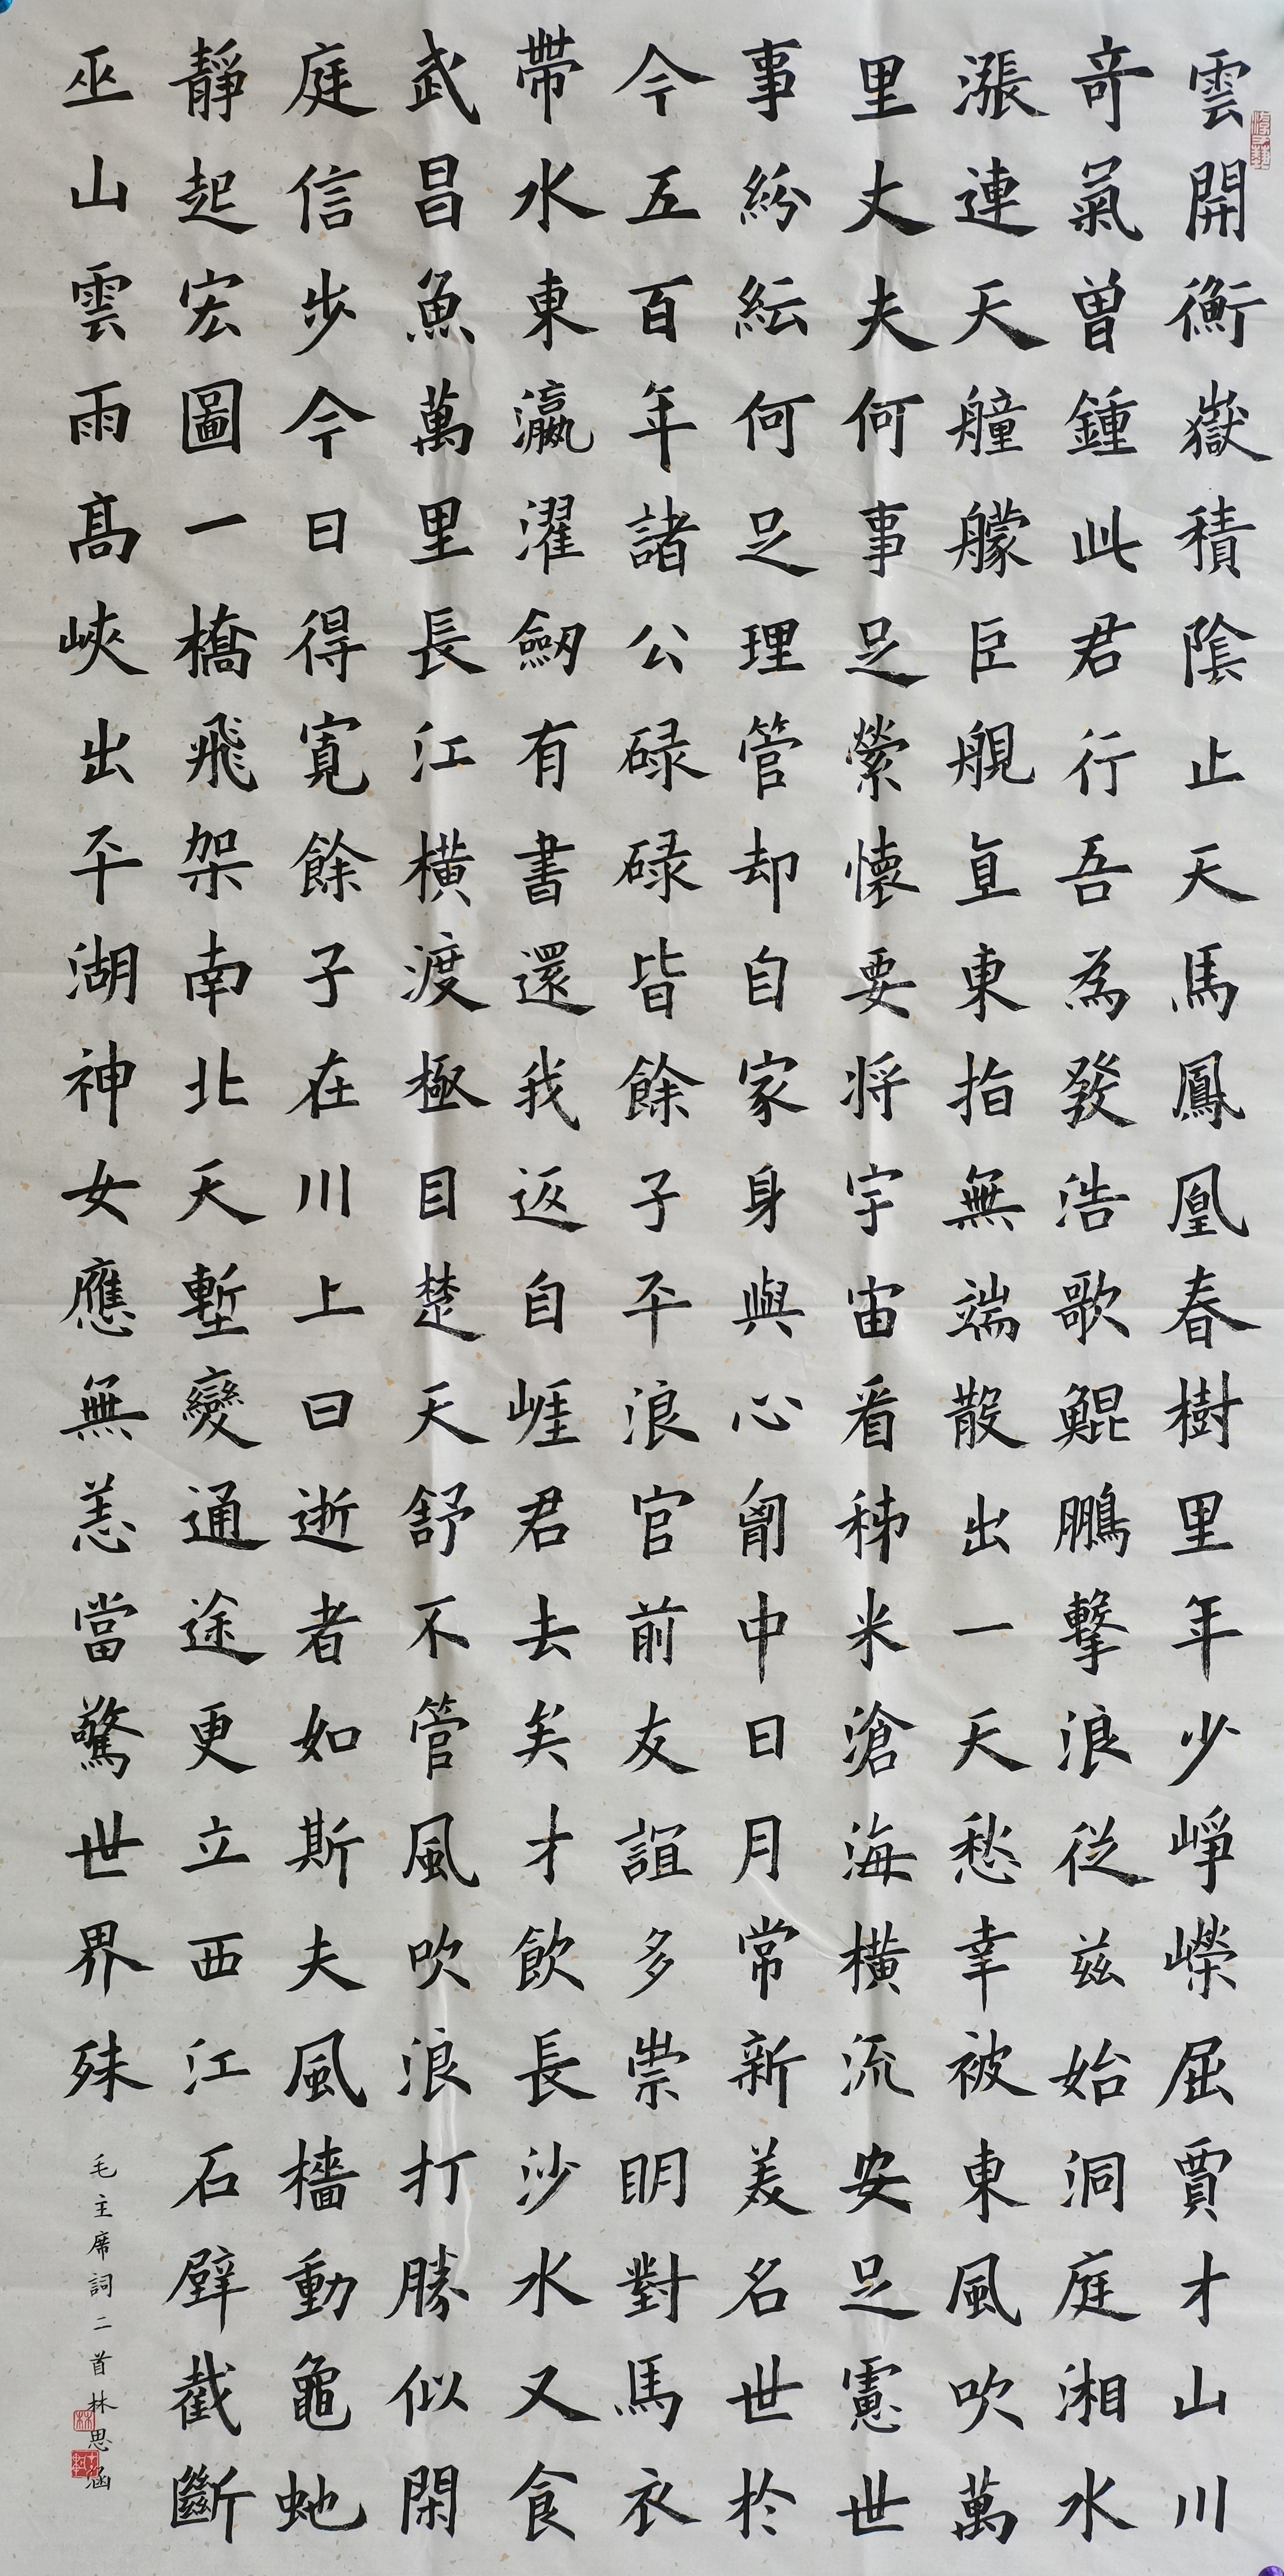 雲開衡嶽積陰止天馬鳳凰春樹里年少崢嶸屈賈才山川
竒氣曽鍾此君行吾為發浩歌鯤鵬擊浪從茲始洞庭湘水
漲連天艟艨巨艦直東指無端散出一天愁幸被東風吹萬
里丈夫何事足縈懷要將宇宙看稊米滄海橫流安足慮世
事紛紜何足理管却自家身與心胷中日月常新美名世於
今五百年諸公碌碌皆餘子平浪宮前友誼多崇明對馬衣
帶水東瀛濯劒有書還我返自崖君去矣才飲長沙水又食
武昌魚萬里長江橫渡極目楚天舒不管風吹浪打勝似閑
庭信步今日得寬餘子在川上曰逝者如斯夫風檣動龜虵
靜起宏圖一橋飛架南北天塹變通途更立西江石壁截斷
巫山雲雨高峽出平湖神女應無恙當驚世界殊
毛主席詞二首林思涵